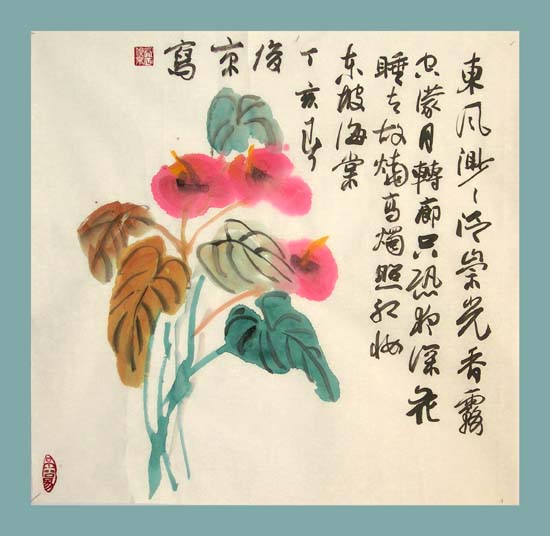 東风渺々泛崇光香霧
空濛月轉廊只恐夜深花
睡去故燒高燭照红妝
东坡海棠
丁亥
俊京寫